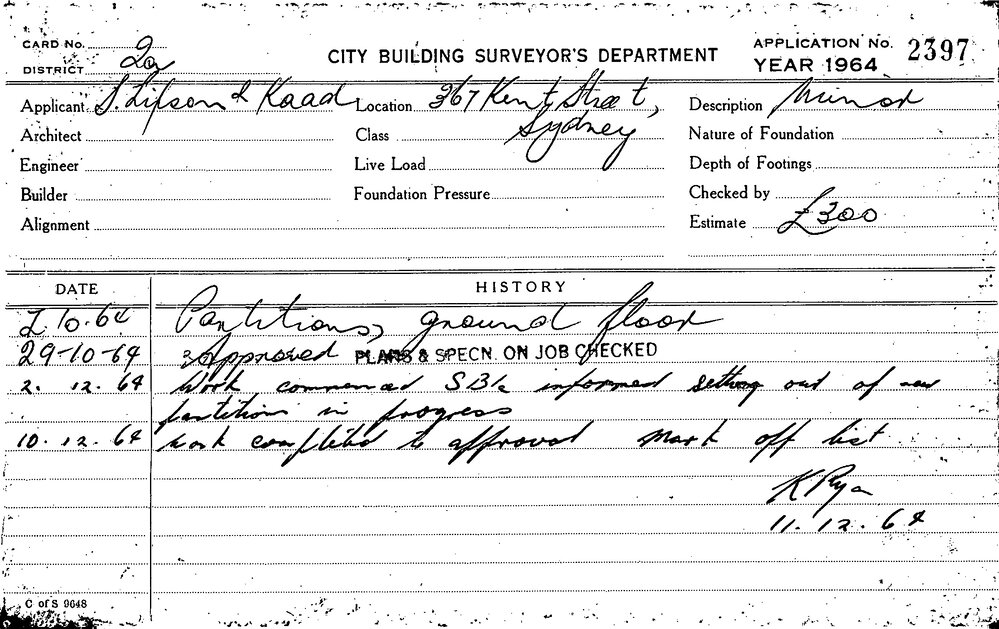 CARD No.
DISTRICT 2a
CITY BUILDING SURVEYOR'S DEPARTMENT
APPLICATION No. 2397
YEAR 1964
Applicant S. Lipson & Kaad
Location 367 Kent Street,
Sydney
Description Minor
Architect
Class
Nature of Foundation
Engineer
Live Load
Depth of Footings
Builder
Foundation Pressure
Checked by
Alignment
Estimate £300
DATE
HISTORY
10.64 Partitions, ground floor
29-10-64 Approved PLANS & SPECN. ON JOB CHECKED
2. 12. 64 Work commenced informed setting out of new
partitions in progress
10. 12. 64 work completed to approval mark off list
K Ryan
11. 12. 64
C of S 9648